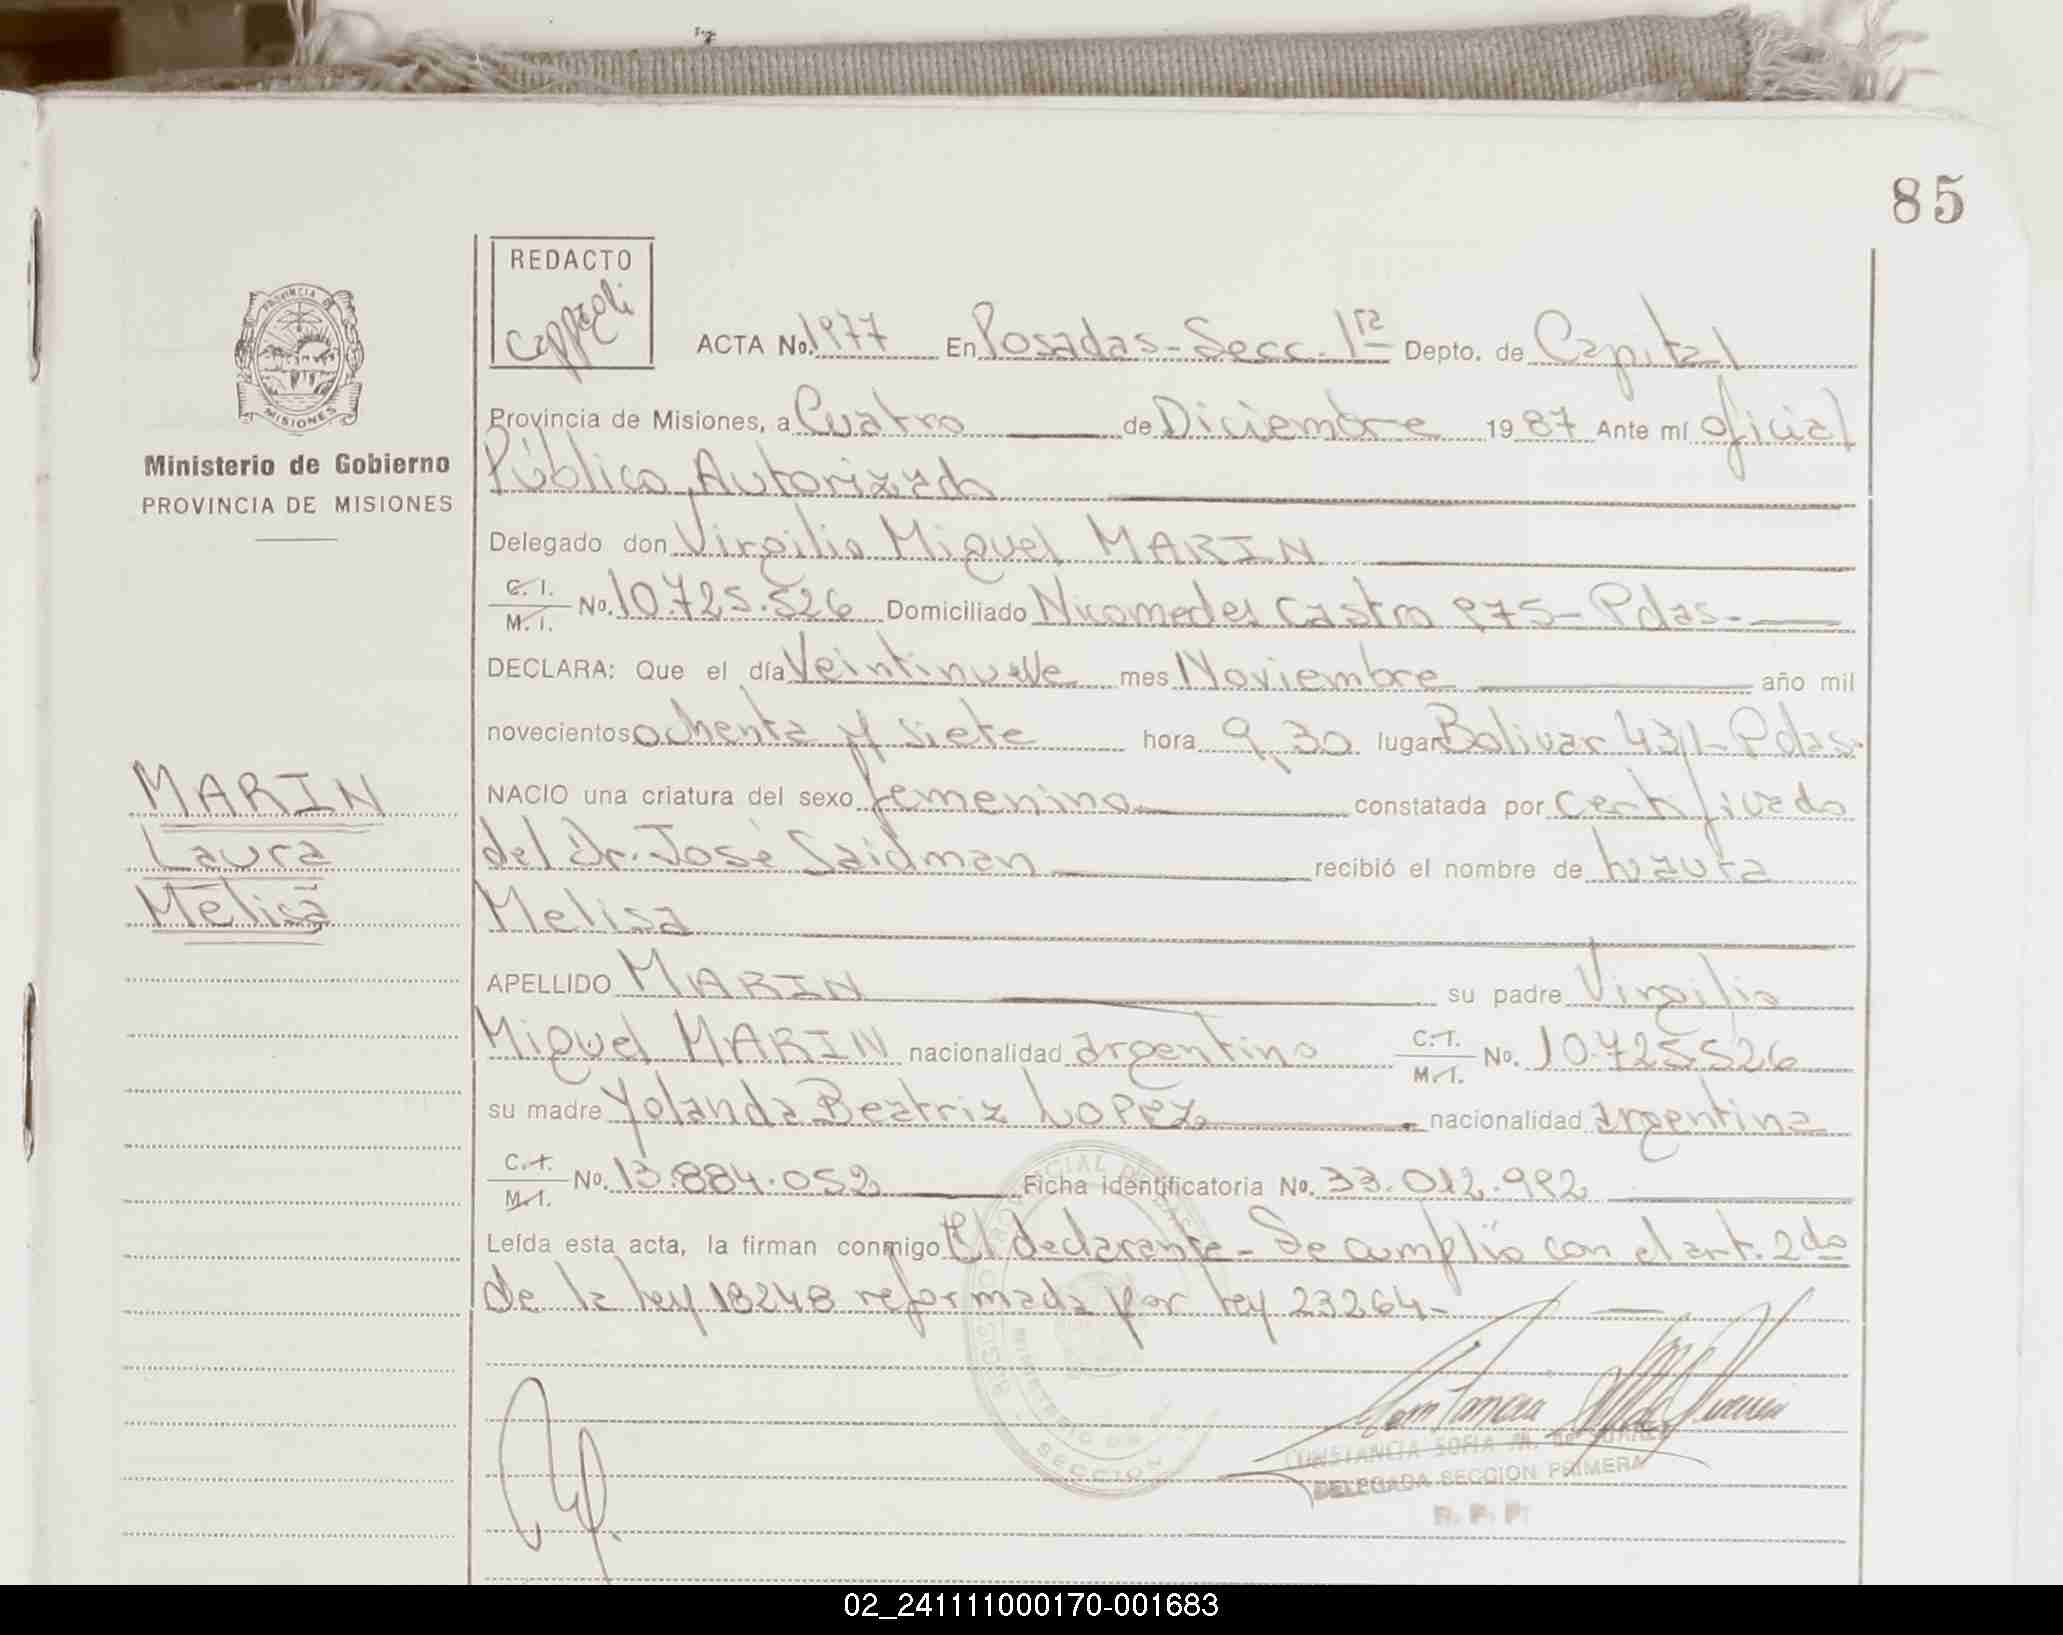 85
REDACTO
ACTA No. 1977 En Posadas - Secc. 1ra Depto. de Capital
Provincia de Misiones, a Cuatro de Diciembre 1987 Ante mí oficial
Público Autorizado
PROVINCIA DE
MISIONES
Ministerio de Gobierno
PROVINCIA DE MISIONES
Delegado don Virgilio Miguel MARIN
C. I.
M. I. No. 10.725.526 Domiciliado Nicomedes Castro 975 - Pdas -
DECLARA: Que el día Veintinueve mes Noviembre año mil
novecientos ochenta y siete hora 9,30 lugar Bolivar 431 - Pdas -
MARIN
Laura
Melisa
NACIO una criatura del sexo femenino constatada por certificado
del Dr. José Saidman recibió el nombre de Laura
Melisa
APELLIDO MARIN su padre Virgilio
Miguel MARIN nacionalidad argentino C. I.
M. I. No. 10.725.526
su madre Yolanda Beatriz LOPEZ nacionalidad argentina
C. I.
M. I. No. 13.884.052 Ficha identificatoria No. 33.012.992
Leída esta acta, la firman conmigo El declarante - Se cumplió con el art. 2do
de la ley 18248 reformada por ley 23264 -
CONSTANCIA SOFIA M. de SUAREZ
DELEGADA SECCION PRIMERA
R. P. P.
SECCION
02_241111000170-001683